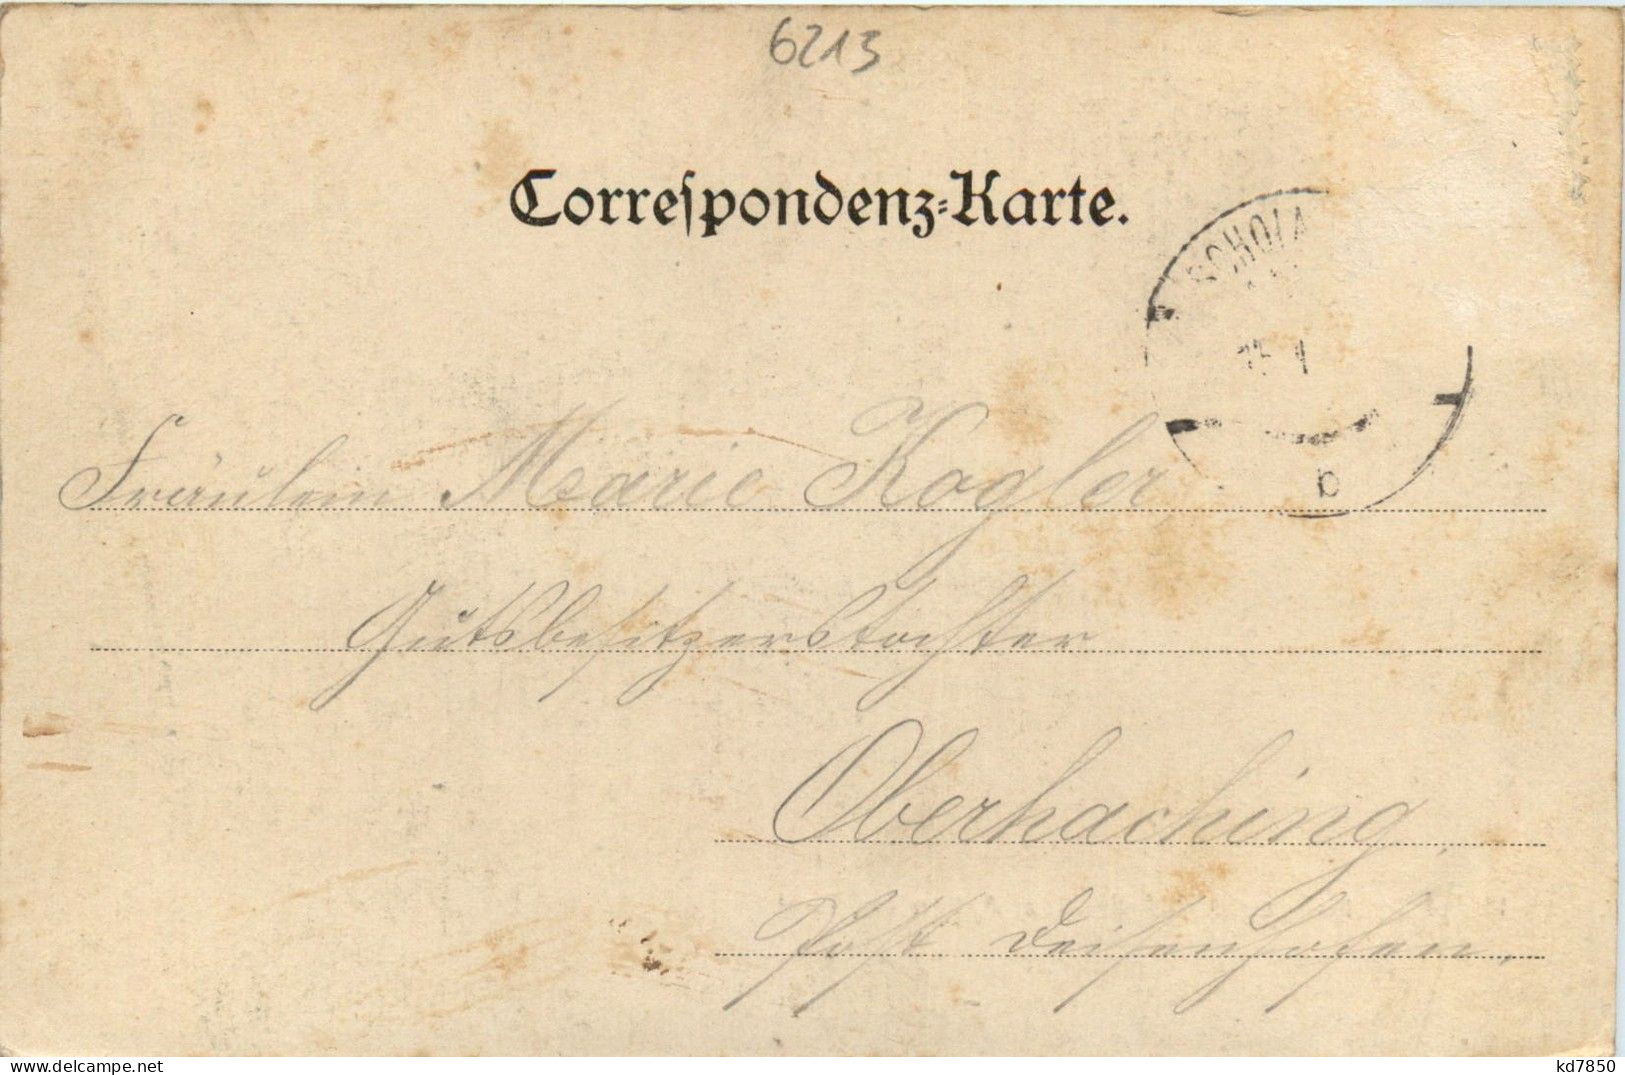 6213
Correſpondenz-Karte.
b
Fräulein Marie Kogler
Gutsbesitzerstochter
Oberhaching,
Post Deisenhofen,
kd7850